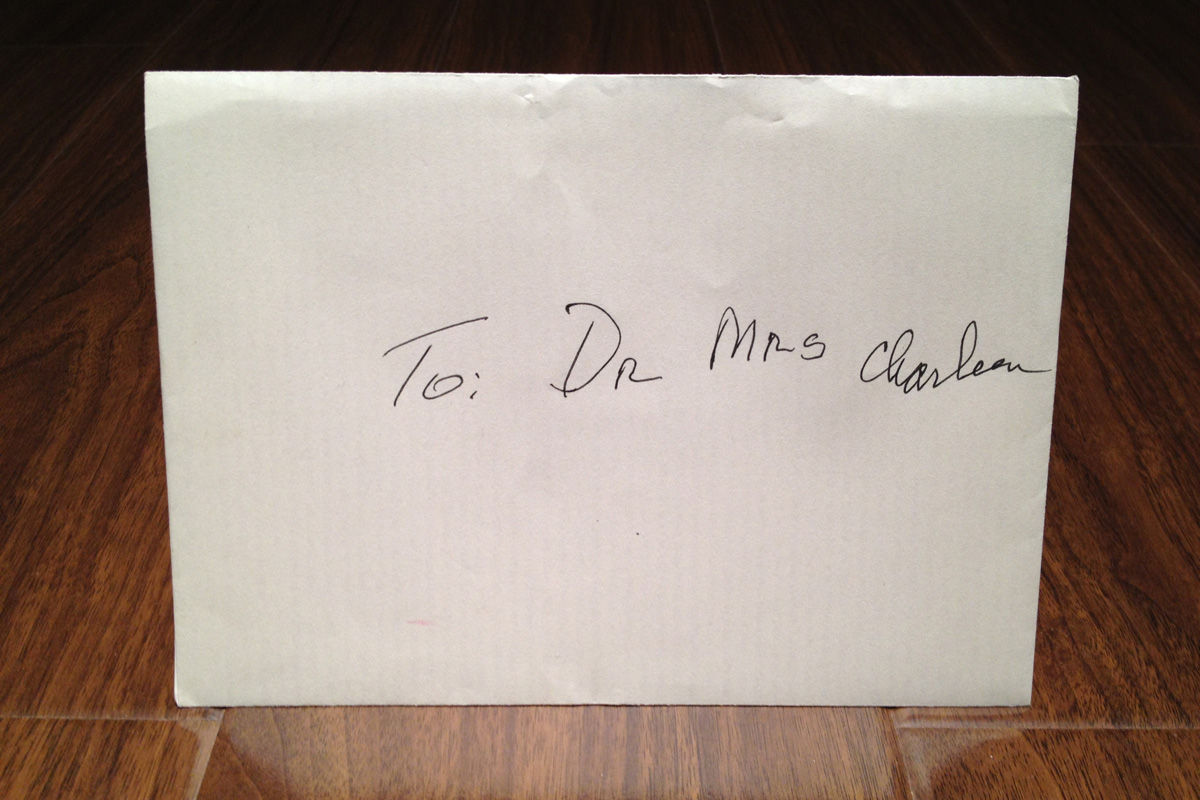 To: DR MRS Charleen